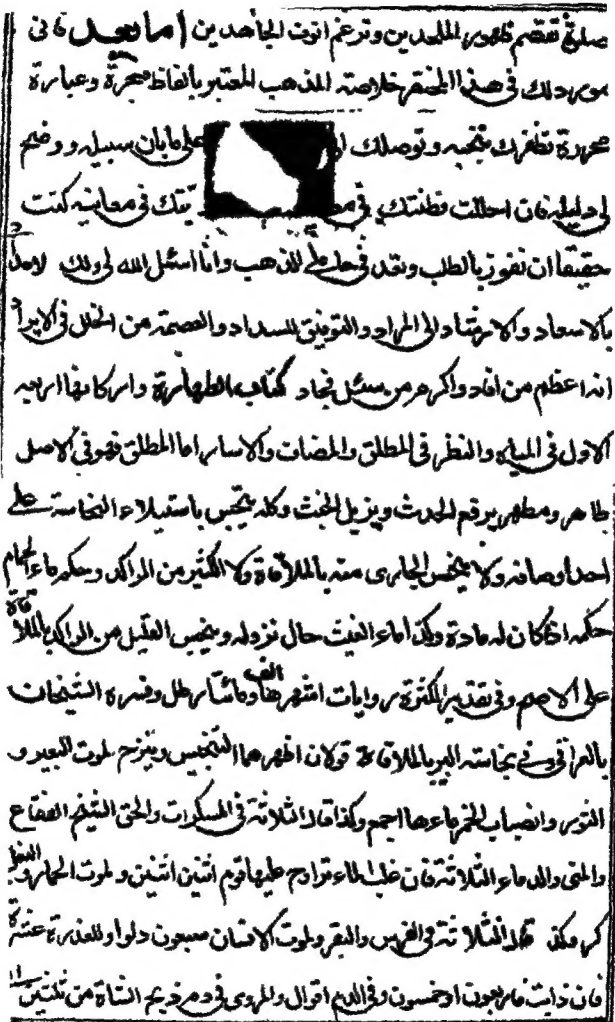 صلوة تقصم ظهور الملحدين وترغم انوف الجاحدين اما بعد فانى
مورد لك فى هذا المختصر خلاصة المذهب المعتبر بالفاظ محبرة وعبارة
محررة تظفرك بنخبه وتوصلك على ما بان سبيله ووضح
لى دليله فان احللت فطنتك فى يتك فى معانيه كنت
حقيقا ان تفوز بالطلب وتعد فى حاملى المذهب وانا اسئل الله لى ولك
بالاسعاد والارشاد الى المراد والتوفيق للسداد والعصمة من الخلل فى الايراد
انه اعظم من افاد واكرم من سئل فجاد كتاب الطهارة واركانها اربعة
الاول فى المياه والنظر فى المطلق والمضاف والاسار اما المطلق فهو فى الاصل
طاهر ومطهر يرفع الحدث ويزيل الخبث وكله ينجس باستيلاء النجاسة على
احد اوصافه ولا ينجس الجارى منه بالملاقاة ولا الكثير من الراكد وحكم ماء الحمام
حكمه اذا كان له مادة وكذا ماء الغيث حال نزوله وينجس القليل من الراكد بالملاقاة
على الاصح وفى تقدير الكثرة روايات اشهرها الف ومائتا رطل وفسره الشيخان
بالعراقى وفى نجاسة البير بالملاقاة قولان اظهرهما التنجيس وينزح لموت البعير و
الثور وانصباب الخمر ماءها اجمع وكذا قال الثلاثة فى المسكرات والحق الشيخ الفقاع
والمنى والدماء الثلاثة فان غلب الماء تراوح عليها قوم اثنين اثنين ولموت الحمار والبغل
كر وكذا قال الثلاثة فى الفرس والبقر ولموت الانسان سبعون دلوا وللعذرة عشرة
فان ذابت فاربعون او خمسون وفى الدم اقوال والمروى فى دم ذبح الشاة من ثلثين